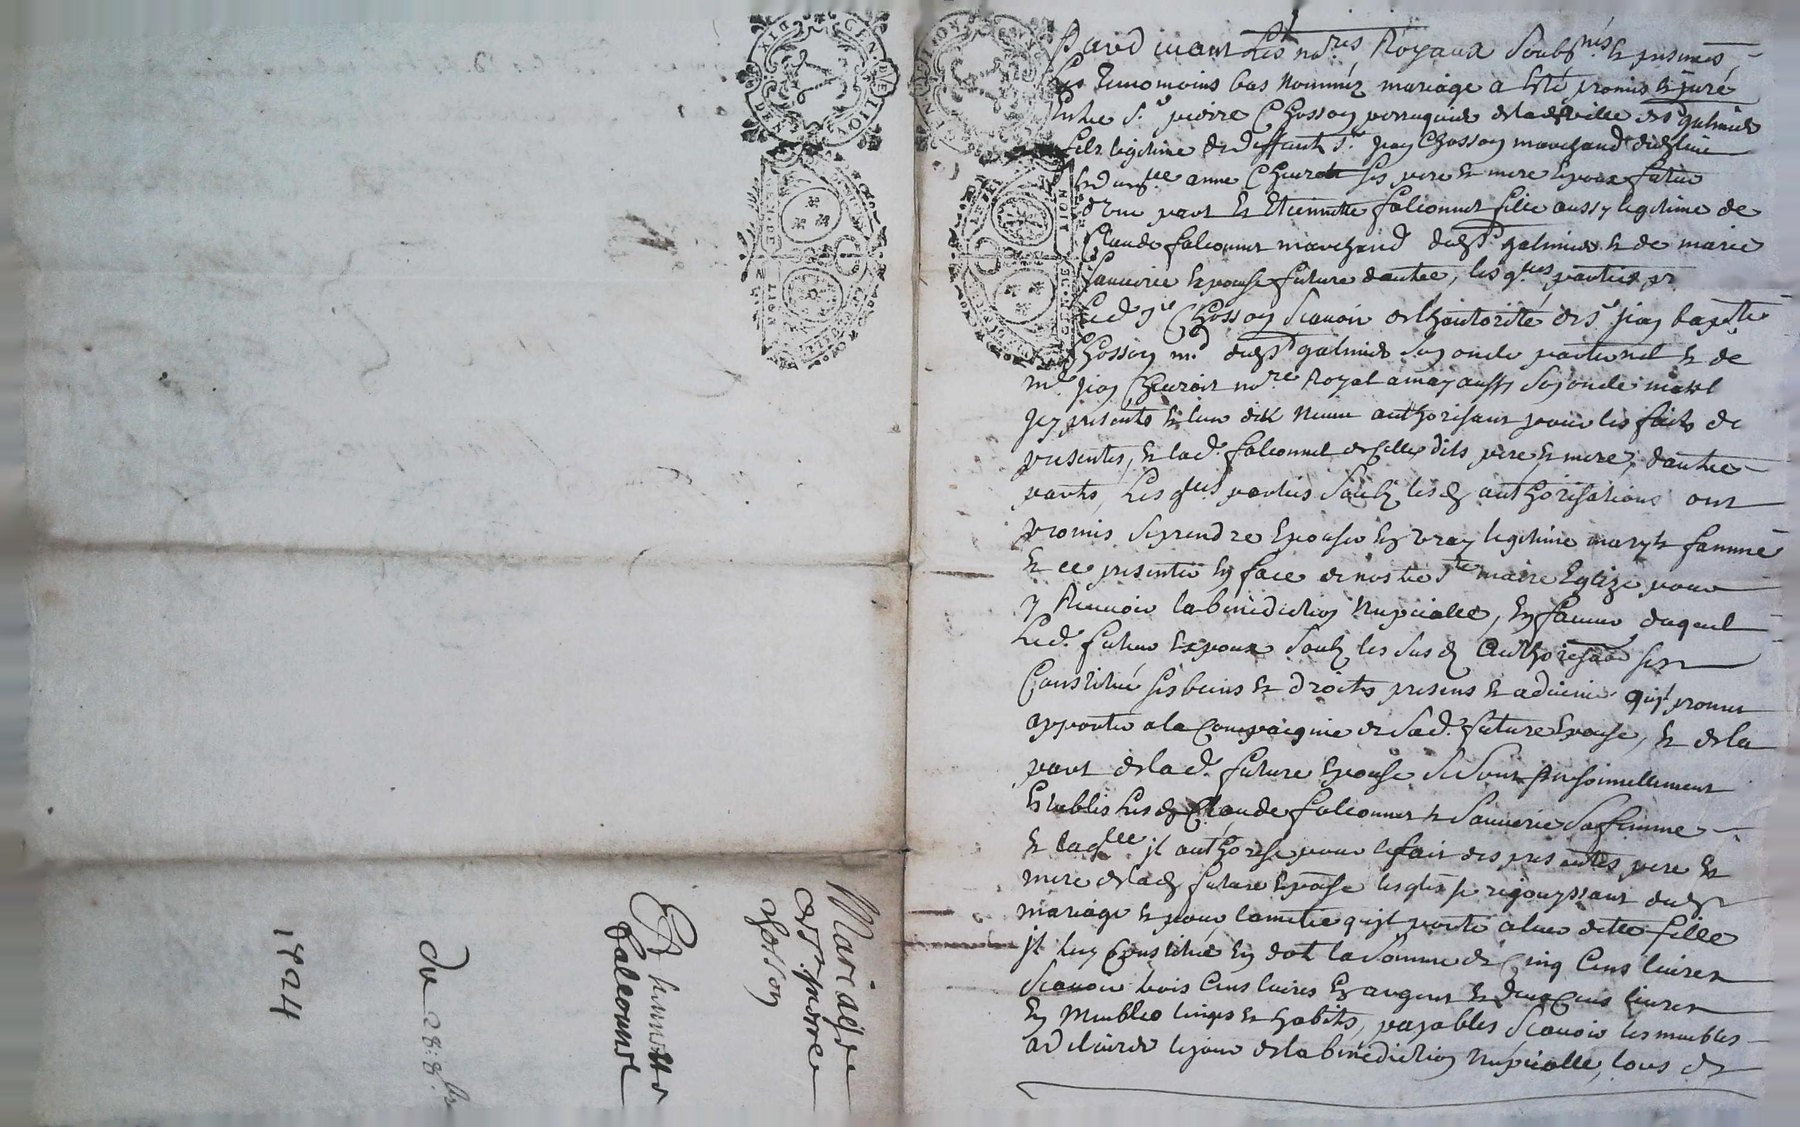 Pard'avant Les no.res Royaux Soubs.nés & presents
Les temoins bas nommez mariage a esté promis & juré
Entre S.r pierre Chosson perruquier de la ville de S.t galmier
fils legitime de deffunt S.r jean Chosson marchand dud. lieu
& d'anne ses pere & mere Epoux futur
d'une part & Etiennette falconnet fille aussy legitime de
Claude falconnet marchand dud. S.t galmier & de marie
Epouse future d'autre, lesq.lles parties
Led. S.r Chosson Scavoir de l'hautorité de S.r jean baptiste
Chosson m.d dud. S.t galmier Son oncle paternel & de
m.e jean no.re Royal aussy Son oncle
jcy presents & leur dit neveu authorisant pour les faits de
presentes, & lad. falconnet de celle desd. pere & mere, d'autre
parts, Lesq.lles parties Soub lesd. authorisations ont
promis Se prendre Epouser En vray legitime mary & famme
& ce presenter En face de nostre S.te maire Eglize pour
y Recevoir la benediction Nupcialle, En faveur duquel
Led. futur Epoux Soub les susd. authorisations s'est
Constitué ses biens & droits presens & advenir qu'jl promet
apporter a la Compaignie de Sad. future Epouse, & de la
part de lad. future Epouse Se Sont Personnellement
Etablis Lesd. Claude falconnet & Sa femme
& laq.lle jl authorise pour l'efait des presentes pere &
mere de lad. future Epouse lesq.ls se rejouyssant dud.
mariage & pour l'amitié qu'jl porte a leur ditte fille
jl luy Constitue En dot la Somme de Cinq Cens livres
Scavoir trois Cens livres En argent & deux Cens livres
En Meubles linges & habits, payables Scavoir les meubles
le jour de la benediction Nupcialle, tous
Mariage
de S.r pierre
Chosson
Et Etiennette
falconnet
du 28: 8.bre
1724